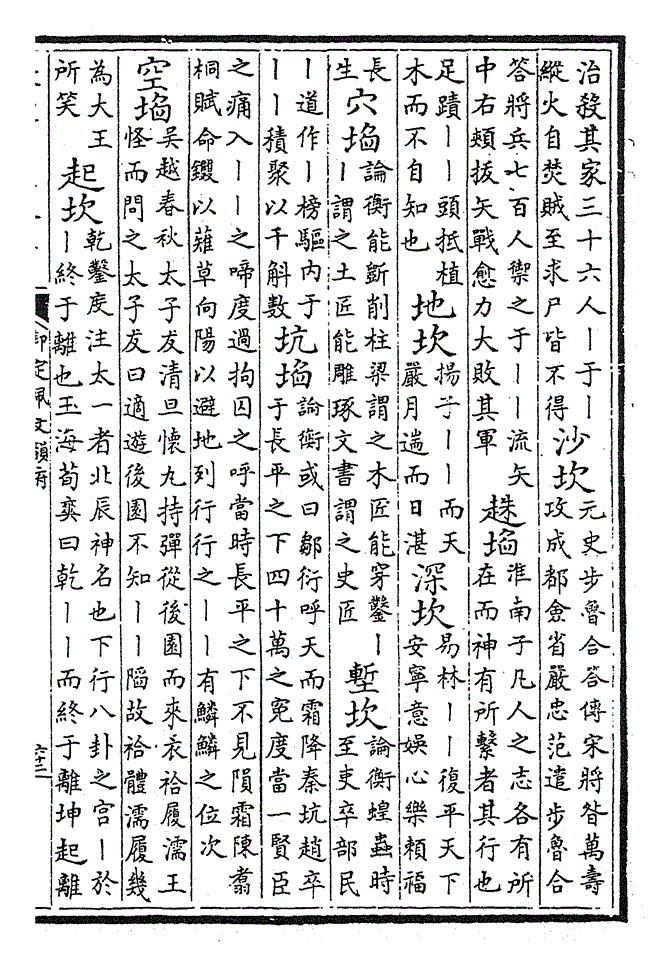 治殺其家三十六人丨于丨
縱火自焚賊至求尸皆不得
沙坎
元史步魯合荅傳宋將昝萬壽
攻成都僉省嚴忠范遣步魯合
荅將兵七百人禦之于丨丨流矢
中右頰拔矢戰愈力大敗其軍
趎埳
淮南子凡人之志各有所
在而神有所繫者其行也
足蹪丨丨頭抵植
木而不自知也
地坎
揚子丨丨而天
嚴月遄而日湛
深坎
易林丨丨復平天下
安寧意娛心樂賴福
長
生
穴埳
論衡能斲削柱梁謂之木匠能穿鑿丨
丨謂之土匠能雕琢文書謂之史匠
塹坎
論衡蝗蟲時
至吏卒部民
丨道作丨榜驅内于
丨丨積聚以千斛數
坑埳
論衡或曰鄒衍呼天而霜降秦坑趙卒
于長平之下四十萬之冤度當一賢臣
之痛入丨丨之啼度過拘囚之呼當時長平之下不見隕霜陳翥
桐賦命钁以薙草向陽以避地列行行之丨丨有鱗鱗之位次
空埳
吳越春秋太子友清旦懷丸持彈從後園而來衣袷履濡王
怪而問之太子友曰適遊後園不知丨丨陷故袷體濡履幾
為大王
所笑
起坎
乾鑿度注太一者北辰神名也下行八卦之宮丨於
丨終于離也玉海荀奭曰乾丨丨而終于離坤起離
御定佩文韻府